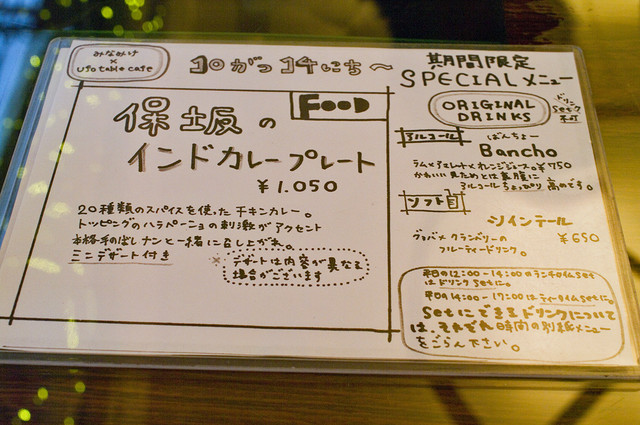 みなみけ
×
ufotable cafe
10がつ14にち〜
期間限定
SPECIALメニュー
FOOD
保坂の
インドカレープレート
¥1.050
20種類のスパイスを使ったチキンカレー。
トッピングのハラペーニョの刺激がアクセント
本格手のばしナンと一緒に召し上がれ。
ミニデザート付き
※デザートは内容が異なる
場合がございます
ORIGINAL
DRINKS
ドリンク
Setク
アルコール
ばんちょー
Bancho
ラム×チェレット×オレンジジュース。¥750
かわいい見ためとは裏腹に
アルコールちょっぴり高めです。
ソフト
ツインテール
グァバ×クランベリーの ¥650
フルーティードリンク。
平日の12:00-14:00のランチタイムSet
はドリンクSetに。
平日の14:00-17:00はティータイムSetに。
Setにできるドリンクについて
は、それぞれ時間の別紙メニュー
をごらん下さい。